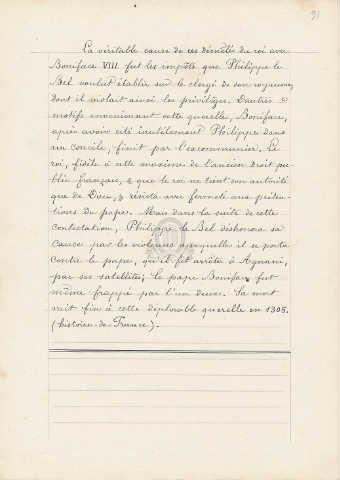 91
La véritable cause de ces démêlés du roi avec
Boniface VIII fut les impôts que Philippe le
Bel voulut établir sur le clergé de son royaume,
dont il violait ainsi les privilèges. D'autres
motifs envenimèrent cette querelle, Boniface,
après avoir cité inutilement Philippe dans
un concile, finit par l'excommunier. Le
roi, fidèle à cette maxime de l'ancien droit pu-
blic français, que le roi ne tient son autorité
que de Dieu, résista avec fermeté aux préten-
tions du pape. Mais dans la suite de cette
contestation, Philippe le Bel déshonora sa
cause par les violences auxquelles il se porta
contre le pape, qu'il fit arrêter à Agnani,
par ses satellites; le pape Boniface fut
même frappé par l'un d'eux. Sa mort
mit fin à cette déplorable querelle en 1303.
(histoire de France).